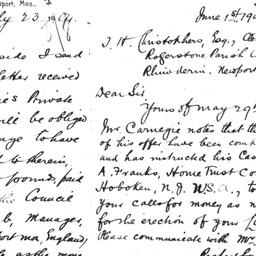 port, Mon.,
ly 23, 1904.
side I send
letter received
ie's Private
ill be obliged
nge to have
d to therein,
pounds, paid
this Council
b, Manager,
port Mon, England,
as the mone
June 1st 190
J. H. Christophers, Esq., Cle
Rogerstone Parish
Rhiwderin, Newport
Dear Sir,
Yours of May 29
Mr. Carnegie notes that the
of his offer have been comp
and has instructed his Cas
A. Franks, Home Trust Co
Hoboken, N.J. U.S.A., to
your calls for money as n
for the erection of your
Please communicate with Mr.